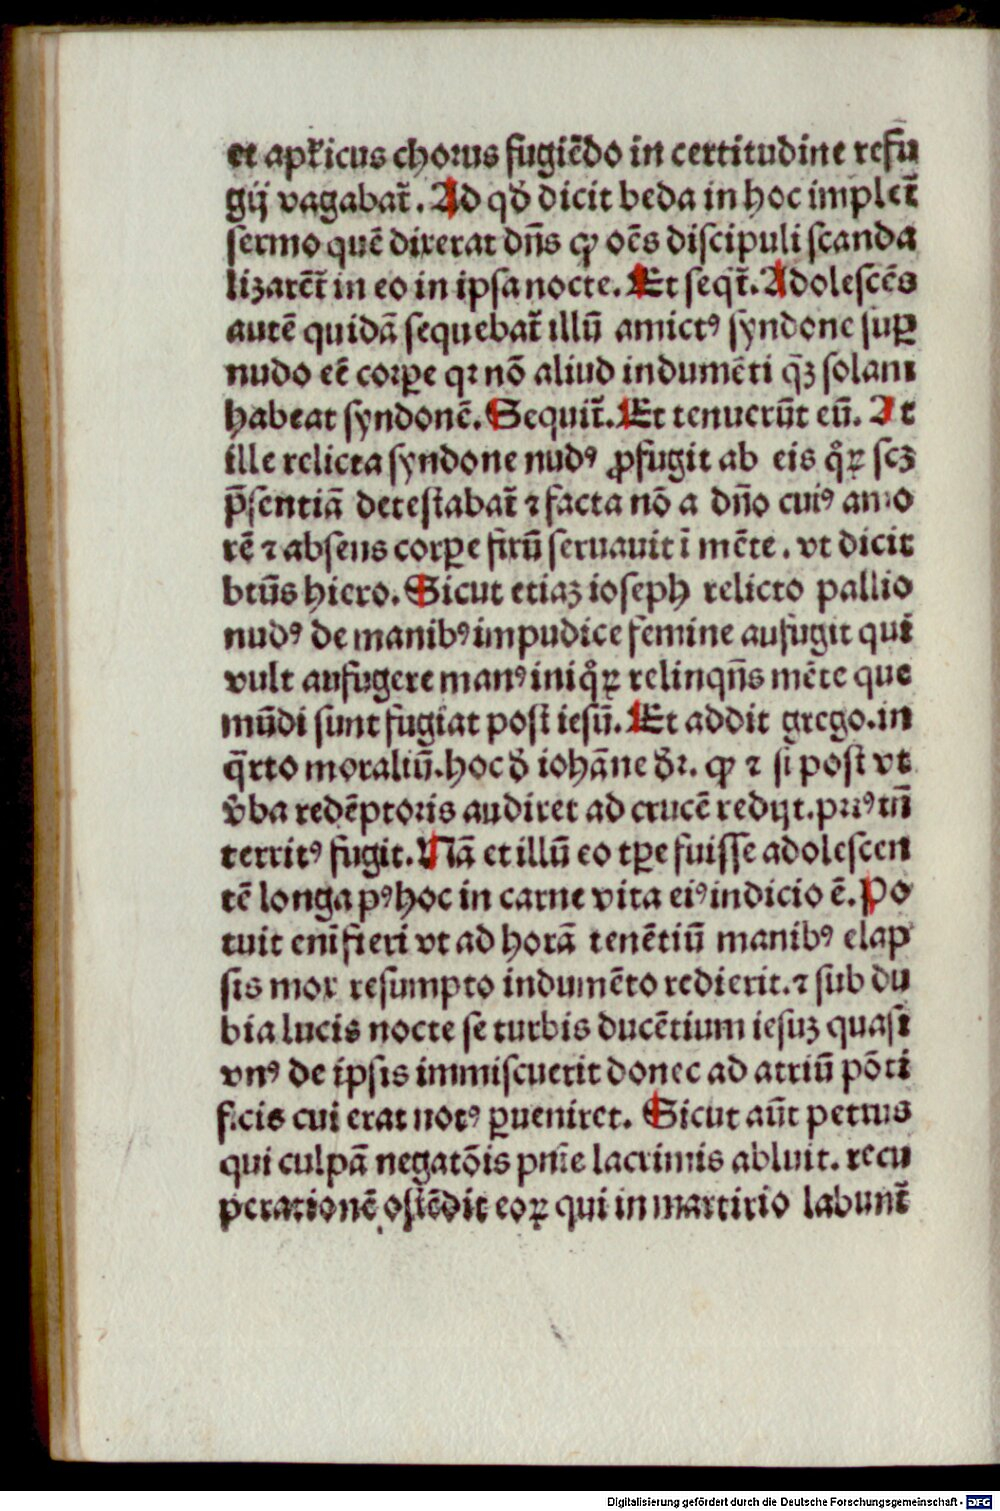 et apl̄icus chorus fugiēdo in certitudine refu
gij vagabat̄. Ad qđ dicit beda in hoc implet̄
sermo quē dixerat dn̄s ꝙ oēs discipuli scanda
lizarēt̄ in eo in ipsa nocte. Et seqt̄. Adolescēs
autē quidā sequebat̄ illū amictꝰ syndone suꝑ
nudo eē corꝑe qꝛ nō aliud indumēti qꝫ solam
habeat syndonē. Sequit̄. Et tenuerūt eū. At
ille relicta syndone nudꝰ ꝓfugit ab eis qͦꝝ scꝫ
p̄sentiā detestabat̄ ⁊ facta nō a dn̄o cuiꝰ amo
rē ⁊ absens corꝑe firū seruauit ī mēte. vt dicit
btūs hiero. Sicut etiaꝫ ioseph relicto pallio
nudꝰ de manibꝰ impudice femine aufugit qui
vult aufugere manꝰ iniqͦꝝ relinqn̄s mēte que
mūdi sunt fugiat post iesū. Et addit grego. in
q̄rto moraliū. hoc đ iohāne đr. ꝙ ⁊ si post vt
v̄ba redēptoris audiret ad crucē redijt. priꝰ tn̄
territꝰ fugit. Nā et illū eo tꝑe fuisse adolescen
tē longa pꝰ hoc in carne vita eiꝰ indicio ē. Po
tuit enī fieri vt ad horā tenētiū manibꝰ elap
sis mox resumpto indumēto redierit. ⁊ sub du
bia lucis nocte se turbis ducētium iesuꝫ quasi
vnꝰ de ipsis immiscuerit donec ad atriū pōti
ficis cui erat notꝰ ꝑueniret. Sicut aūt petrus
qui culpā negatōis pm̄e lacrimis abluit. recu
perationē ostēdit eoꝝ qui in martirio labunt̄
Digitalisierung gefördert durch die Deutsche Forschungsgemeinschaft - DFG